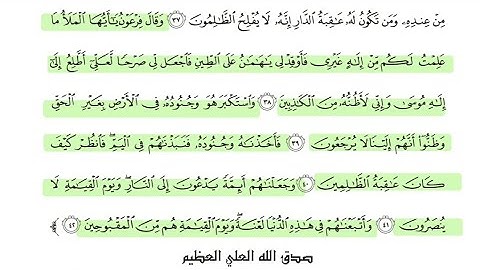 مِنْ عِندِهِۦ وَمَن تَكُونُ لَهُۥ عَٰقِبَةُ ٱلدَّارِ إِنَّهُۥ لَا يُفْلِحُ ٱلظَّٰلِمُونَ ٣٧ وَقَالَ فِرْعَوْنُ يَٰٓأَيُّهَا ٱلْمَلَأُ مَا
عَلِمْتُ لَكُم مِّنْ إِلَٰهٍ غَيْرِى فَأَوْقِدْ لِى يَٰهَٰمَٰنُ عَلَى ٱلطِّينِ فَٱجْعَل لِّى صَرْحًا لَّعَلِّىٓ أَطَّلِعُ إِلَىٰٓ
إِلَٰهِ مُوسَىٰ وَإِنِّى لَأَظُنُّهُۥ مِنَ ٱلْكَٰذِبِينَ ٣٨ وَٱسْتَكْبَرَ هُوَ وَجُنُودُهُۥ فِى ٱلْأَرْضِ بِغَيْرِ ٱلْحَقِّ
وَظَنُّوٓا۟ أَنَّهُمْ إِلَيْنَا لَا يُرْجَعُونَ ٣٩ فَأَخَذْنَٰهُ وَجُنُودَهُۥ فَنَبَذْنَٰهُمْ فِى ٱلْيَمِّ ۖ فَٱنظُرْ كَيْفَ
كَانَ عَٰقِبَةُ ٱلظَّٰلِمِينَ ٤٠ وَجَعَلْنَٰهُمْ أَئِمَّةً يَدْعُونَ إِلَى ٱلنَّارِ ۖ وَيَوْمَ ٱلْقِيَٰمَةِ لَا
يُنصَرُونَ ٤١ وَأَتْبَعْنَٰهُمْ فِى هَٰذِهِ ٱلدُّنْيَا لَعْنَةً ۖ وَيَوْمَ ٱلْقِيَٰمَةِ هُم مِّنَ ٱلْمَقْبُوحِينَ ٤٢
صدق الله العلي العظيم